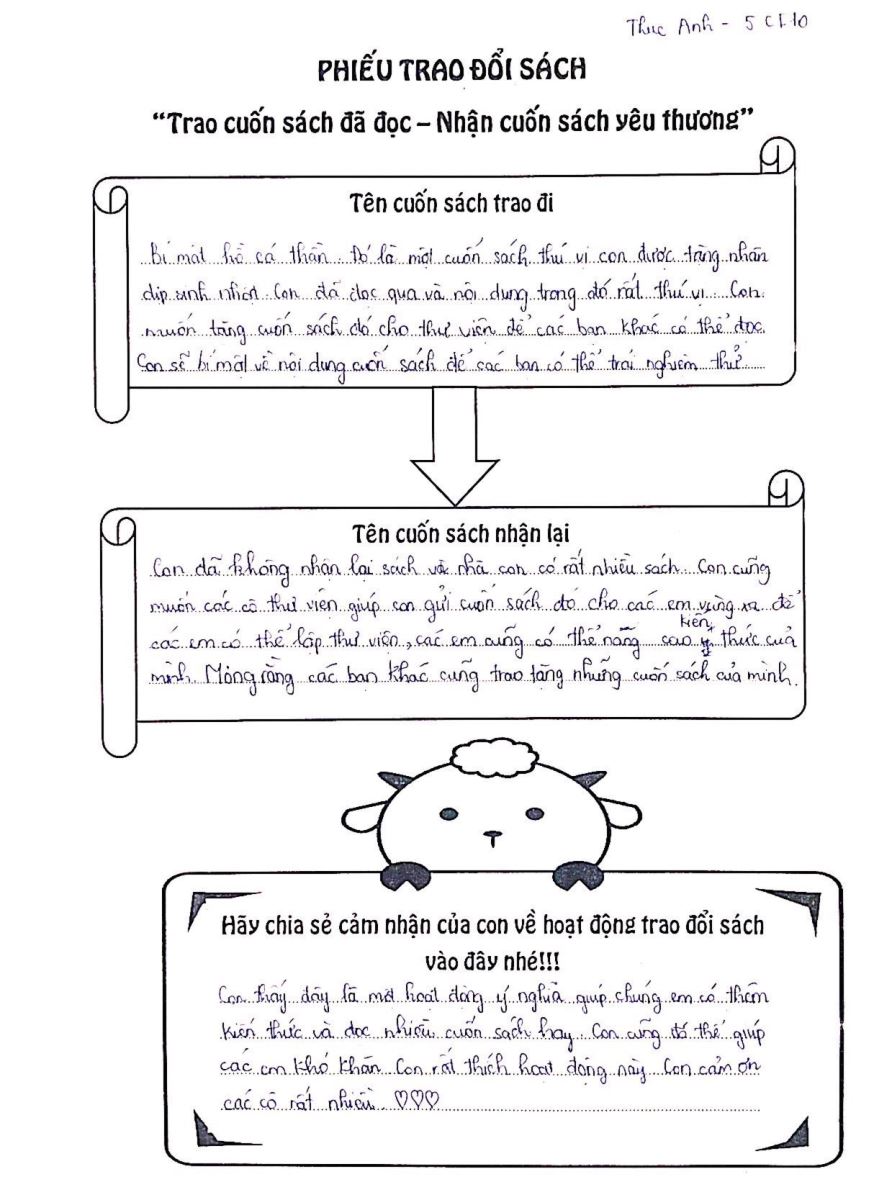 Thuc Anh - 5CI10
PHIẾU TRAO ĐỔI SÁCH
“Trao cuốn sách đã đọc – Nhận cuốn sách yêu thương”
Tên cuốn sách trao đi
Bí mật hồ cá thần. Đó là một cuốn sách thú vị con được tặng nhân
dịp sinh nhật. Con đã đọc qua và nội dung trong đó rất thú vị. Con
muốn tặng cuốn sách đó cho thư viện để các bạn khác có thể đọc.
Con sẽ bí mật về nội dung cuốn sách để các bạn có thể trải nghiệm thử
Tên cuốn sách nhận lại
Con đã không nhận lại sách vì nhà con có rất nhiều sách. Con cũng
muốn các cô thư viện giúp con gửi cuốn sách đó cho các em vùng xa để
các em có thể lập thư viện, các em cũng có thể nâng cao kiến thức của
mình. Mong rằng các bạn khác cũng trao tặng những cuốn sách của mình.
Hãy chia sẻ cảm nhận của con về hoạt động trao đổi sách
vào đây nhé!!!
Con thấy đây là một hoạt động ý nghĩa giúp chúng em có thêm
kiến thức và đọc nhiều cuốn sách hay. Con cũng đã thể giúp
các em khó khăn. Con rất thích hoạt động này. Con cảm ơn
các cô rất nhiều. ♡♡♡